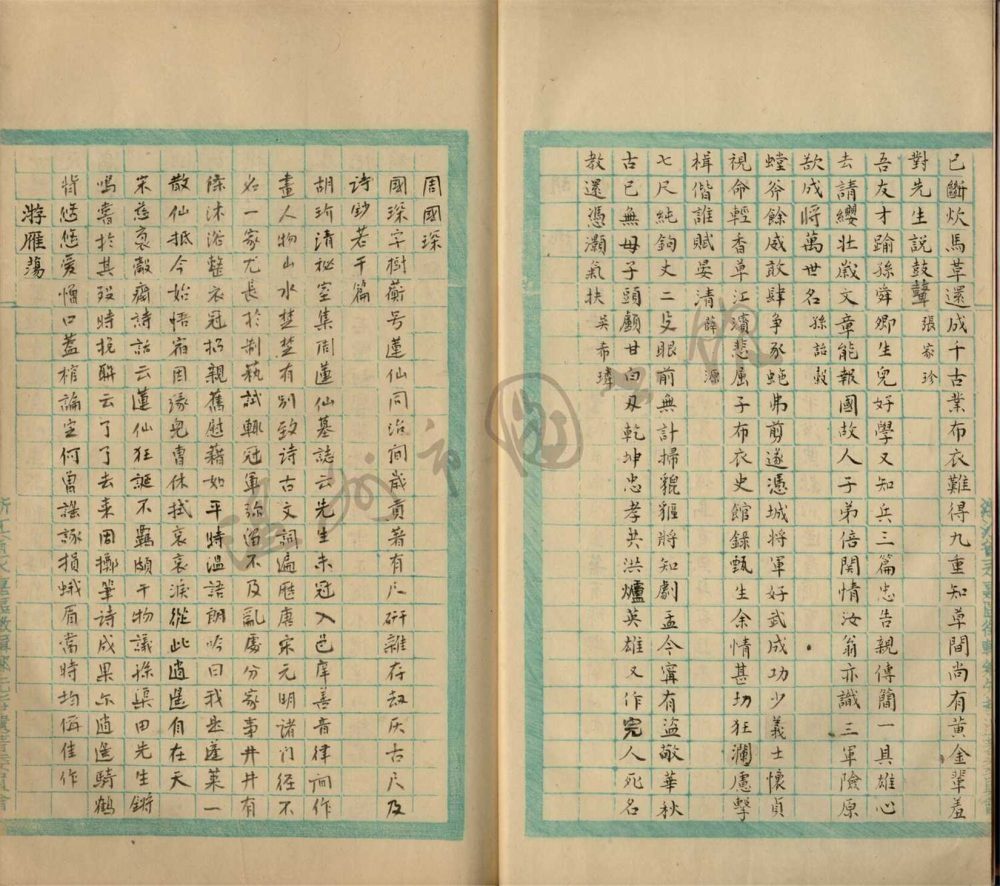 已斷炊馬革還成千古業布衣難得九重知草間尚有黃金鞏羞
對先生說鼓鼙 張家珍
吾友才踰孫舜卿生兒好學又知兵三篇忠告親傳簡一具雄心
去請纓壯歲文章能報國故人子弟倍関情汝翁亦識三軍險原
欲成將萬世名 孫詒穀
螳斧餘威敢肆爭豕虵弗剪遂憑城將軍好武成功少義士懷貞
視命輕香草江濱悲屈子布衣史館錄甄生余情甚切狂瀾慮擊
楫偕誰賦晏清 薛源
七尺純鉤丈二殳眼前無計掃貔貙將知劇孟今寧有盜敬華秋
古已無母子頭顱甘白刃乾坤忠孝共洪爐英雄又作完人死名
教還憑灝氣扶 吳希璘
周國琛
國琛字樹蘅号蓮仙同治间歲貢著有尺硏雜存劫灰古尺及
诗鈔若干篇
胡玠清秘室集周蓮仙墓誌云先生未冠入邑庠善音律间作
畫人物山水楚楚有别致诗古文詞遍歷唐宋元明诸门径不
名一家尤長於制藝試輒冠軍殁不及亂處分家事井井有
條沐浴整衣冠招親舊慰藉如平時温語朗吟曰我是蓬萊一
散仙抵今始悟宿因緣兒曹休拭哀哀淚從此逍遥自在天
宋慈裒敝齋詩話云蓮仙狂誕不羈頗干物議孫渠田先生鏘
鳴嘗於其殁時挽聯云了了去来因擲筆诗成果尔逍遥騎鶴
背悠悠爱憎口蓋棺論定何曾謠諑損蛾眉當時均偁佳作
游雁蕩